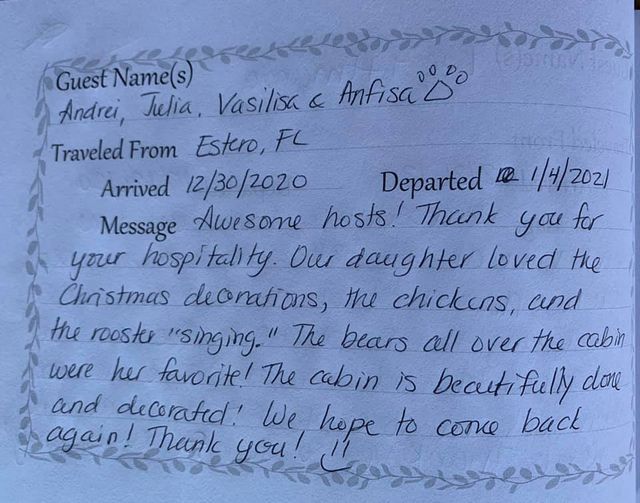 Guest Name(s)
Andrei, Julia, Vasilisa & Anfisa
Traveled From Estero, FL
Arrived 12/30/2020 Departed 1/4/2021
Message Awesome hosts! Thank you for
your hospitality. Our daughter loved the
Christmas decorations, the chickens, and
the rooster "singing." The bears all over the cabin
were her favorite! The cabin is beautifully done
and decorated! We hope to come back
again! Thank you!